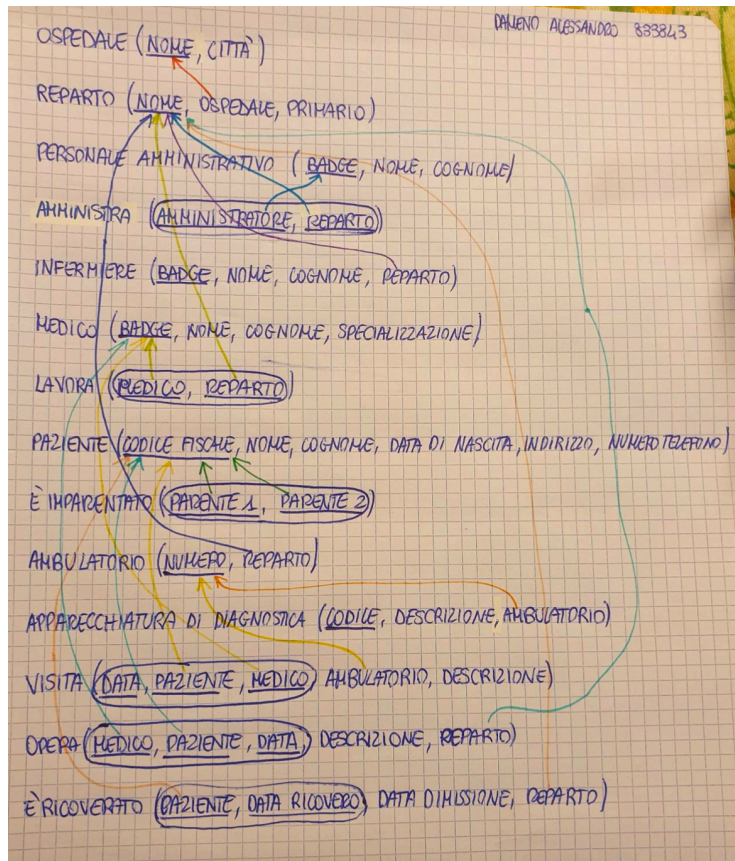 DAMENO ALESSANDRO 833843
OSPEDALE (NOME, CITTÀ)
REPARTO (NOME, OSPEDALE, PRIMARIO)
PERSONALE AMMINISTRATIVO (BADGE, NOME, COGNOME)
AMMINISTRA (AMMINISTRATORE, REPARTO)
INFERMIERE (BADGE, NOME, COGNOME, REPARTO)
MEDICO (BADGE, NOME, COGNOME, SPECIALIZZAZIONE)
LAVORA (MEDICO, REPARTO)
PAZIENTE (CODICE FISCALE, NOME, COGNOME, DATA DI NASCITA, INDIRIZZO, NUMERO TELEFONO)
È IMPARENTATO (PARENTE 1, PARENTE 2)
AMBULATORIO (NUMERO, REPARTO)
APPARECCHIATURA DI DIAGNOSTICA (CODICE, DESCRIZIONE, AMBULATORIO)
VISITA (DATA, PAZIENTE, MEDICO, AMBULATORIO, DESCRIZIONE)
OPERA (MEDICO, PAZIENTE, DATA, DESCRIZIONE, REPARTO)
È RICOVERATO (PAZIENTE, DATA RICOVERO, DATA DIMISSIONE, REPARTO)